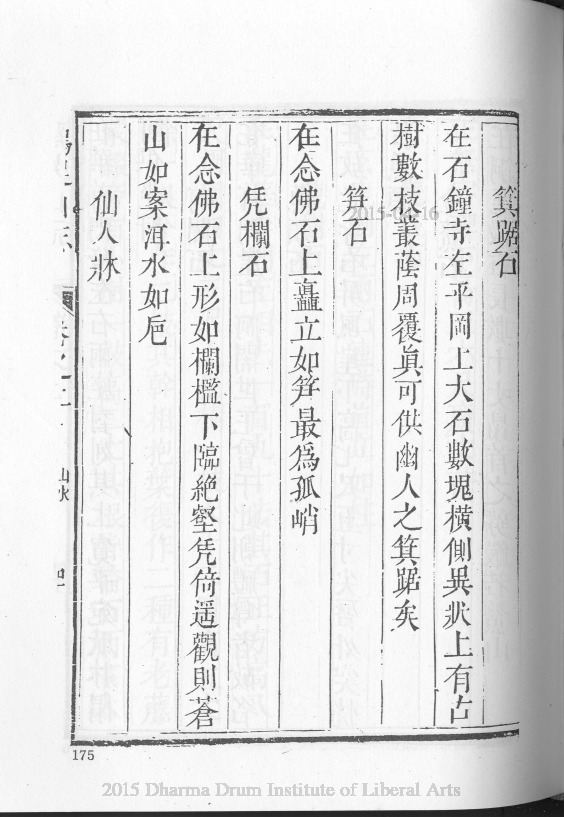 箕踞石
在石鐘寺左平岡上大石數塊橫側異狀上有古
樹數枝叢蔭周覆眞可供幽人之箕踞矣
笋石
在念佛石上矗立如笋最爲孤峭
凭欄石
在念佛石上形如欄檻下臨絶壑凭倚遥觀則蒼
山如案洱水如巵
仙人牀
山志
卷之二
山水
175
2015 Dharma Drum Institute of Liberal Arts